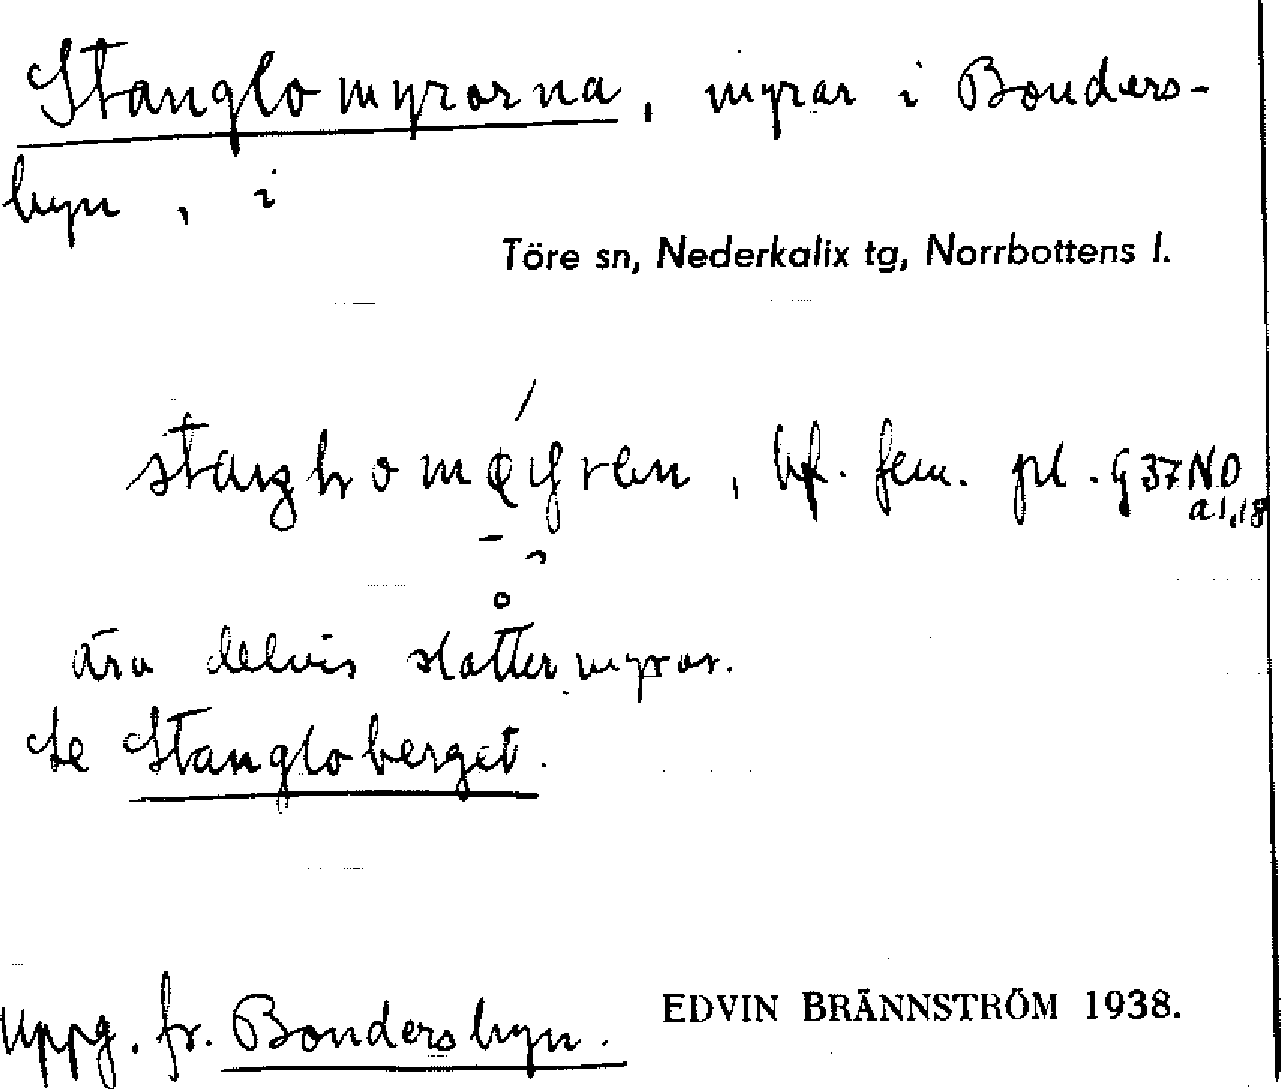 Stanglomyrorna, myrar i Bonders-
byn, i
Töre sn, Nederkalix tg, Norrbottens l.
bf. fem. pl. G37ND
a.1,18
äro delvis slåttermyrar.
Se Stangloberget.
Uppg. fr. Bondersbyn.
EDVIN BRÄNNSTRÖM 1938.